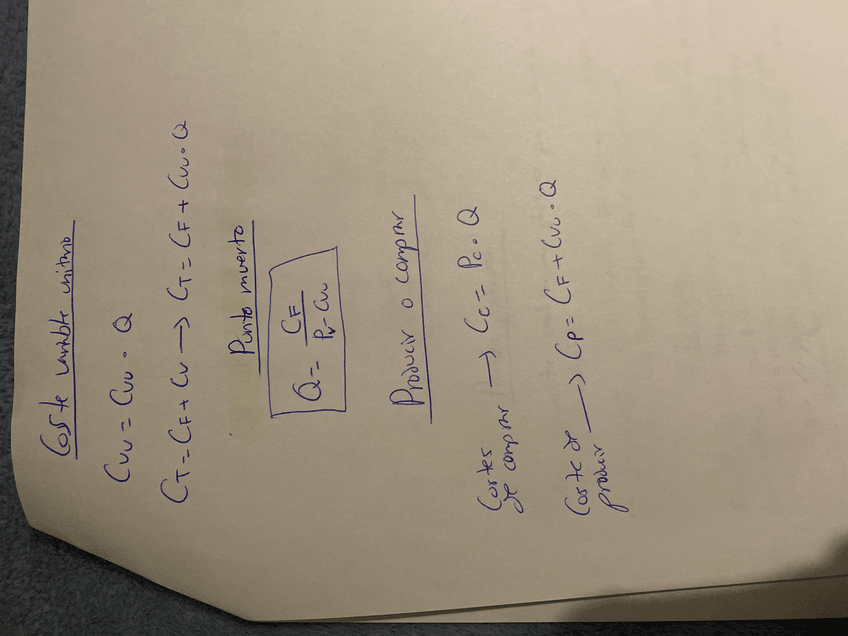 Coste variable unitario
Cvu = Cvu · Q
CT = CF + CV → CT = CF + Cvu · Q
Punto muerto
Q = CF / Pv - Cvu
Producir o comprar
Costes de comprar → Cc = Pc · Q
Coste de producir → CP = CF + Cvu · Q